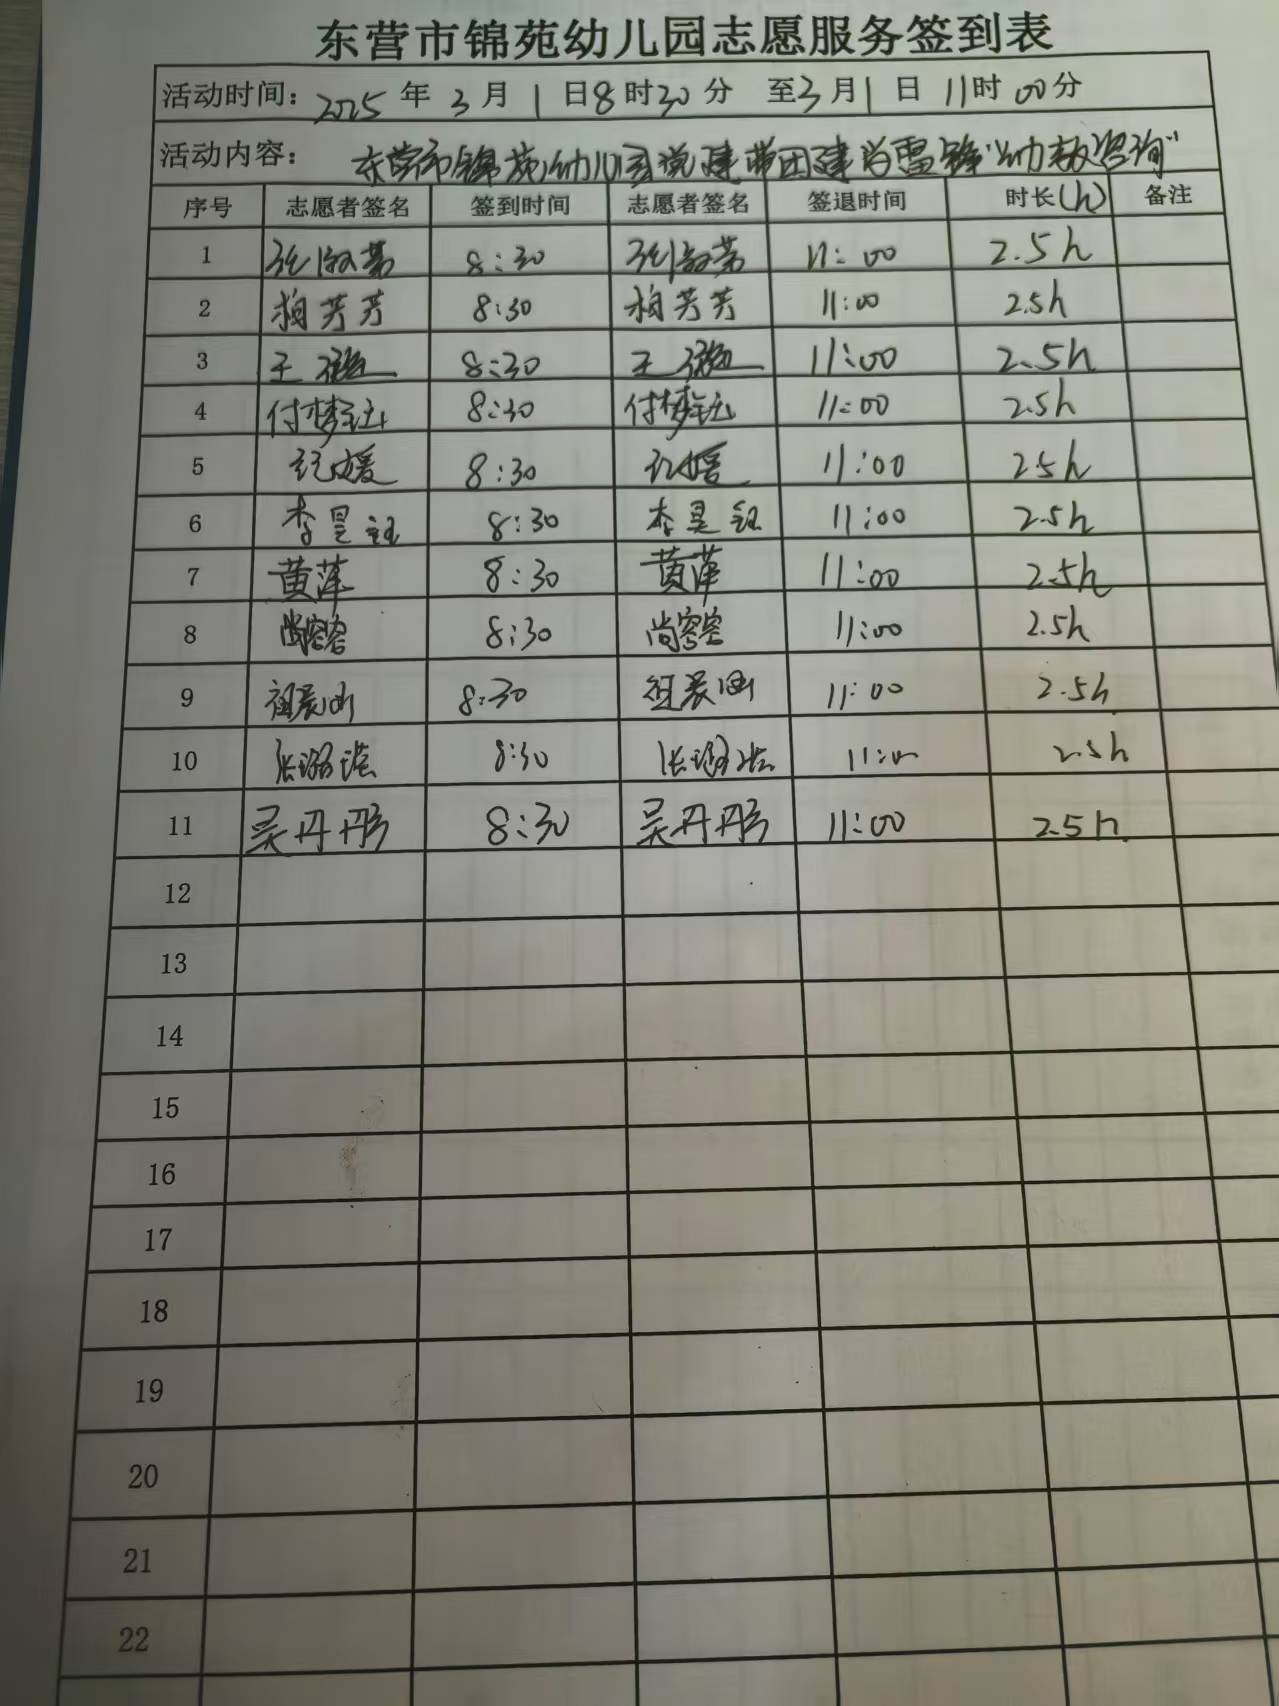 东营市锦苑幼儿园志愿服务签到表
活动时间：2025年3月1日8时30分 至3月1日11时00分
活动内容：东营市锦苑幼儿园党建带团建学雷锋"幼教咨询"
序号 志愿者签名 签到时间 志愿者签名 签退时间 时长(h) 备注
1 8:30 11:00 2.5h
2 柏芳芳 8:30 柏芳芳 11:00 2.5h
3 王 8:30 王 11:00 2.5h
4 付梦钰 8:30 付梦钰 11:00 2.5h
5 纪媛 8:30 纪媛 11:00 2.5h
6 李昱钰 8:30 李昱钰 11:00 2.5h
7 黄萍 8:30 黄萍 11:00 2.5h
8 尚容容 8:30 尚容容 11:00 2.5h
9 8:30 11:00 2.5h
10 张璐 8:30 张璐 11:00 2.5h
11 吴丹彤 8:30 吴丹彤 11:00 2.5h
12
13
14
15
16
17
18
19
20
21
22